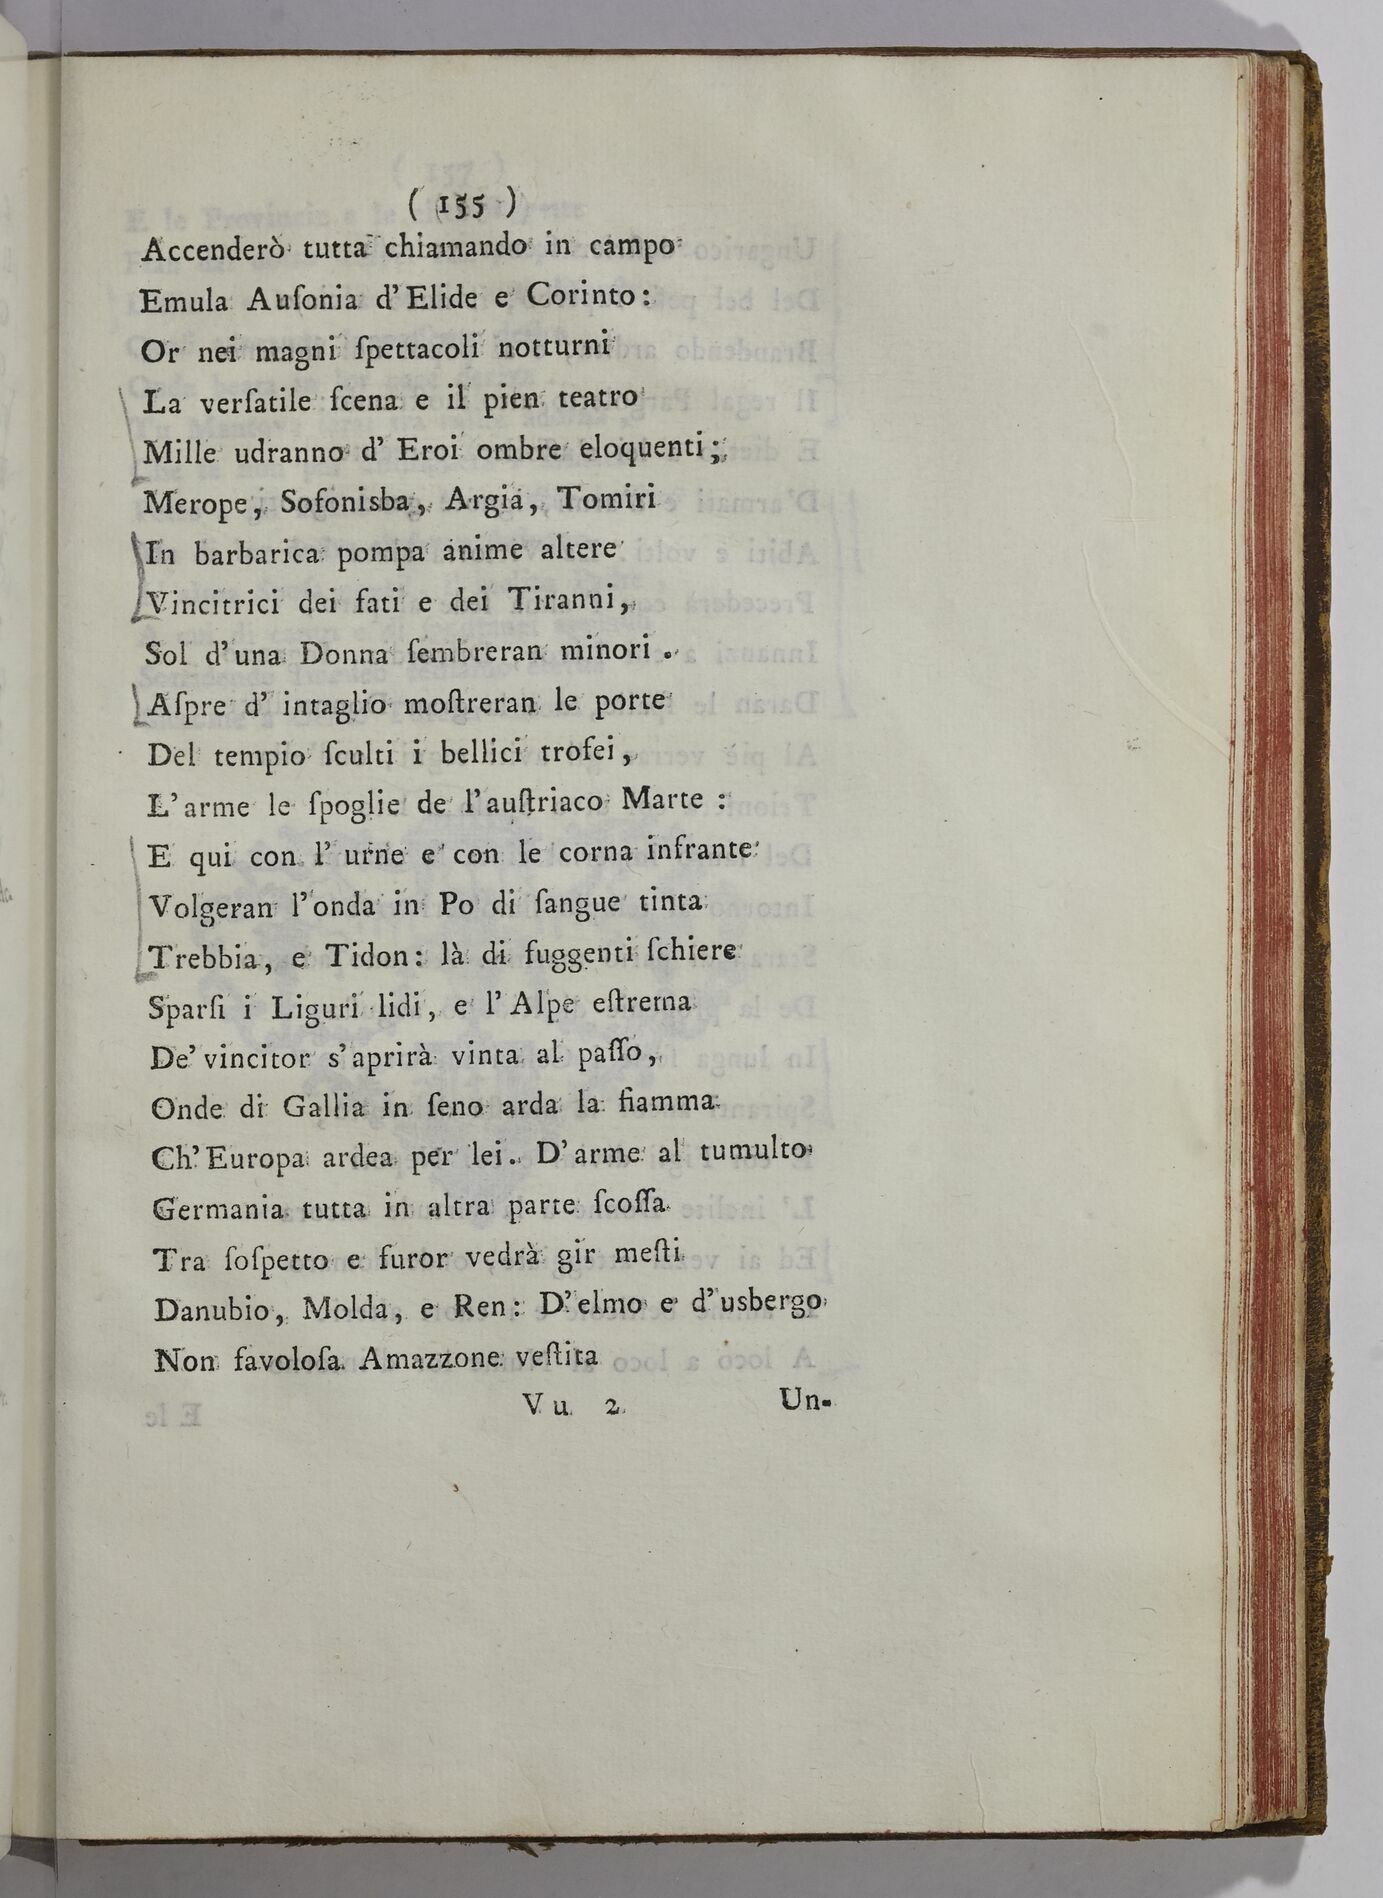 ( 155 )
Accenderò tutta chiamando in campo
Emula Auſonia d'Elide e Corinto:
Or nei magni ſpettacoli notturni
La verſatile ſcena e il pien teatro
Mille udranno d' Eroi ombre eloquenti;
Merope, Sofonisba, Argia, Tomiri
In barbarica pompa anime altere
Vincitrici dei fati e dei Tiranni,
Sol d'una Donna ſembreran minori.
Aſpre d' intaglio moſtreran le porte
Del tempio ſculti i bellici trofei,
L'arme le ſpoglie de l'auſtriaco Marte:
E qui con l' urne e con le corna infrante
Volgeran l'onda in Po di ſangue tinta
Trebbia, e Tidon: là di fuggenti ſchiere
Sparſi i Liguri lidi, e l'Alpe eſtrema
De' vincitor s'aprirà vinta al paſſo,
Onde di Gallia in ſeno arda la fiamma
Ch' Europa ardea per lei. D'arme al tumulto
Germania tutta in altra parte ſcoſſa
Tra ſoſpetto e furor vedrà gir meſti
Danubio, Molda, e Ren: D'elmo e d'usbergo
Non favoloſa Amazzone veſtita
V u 2 Un-